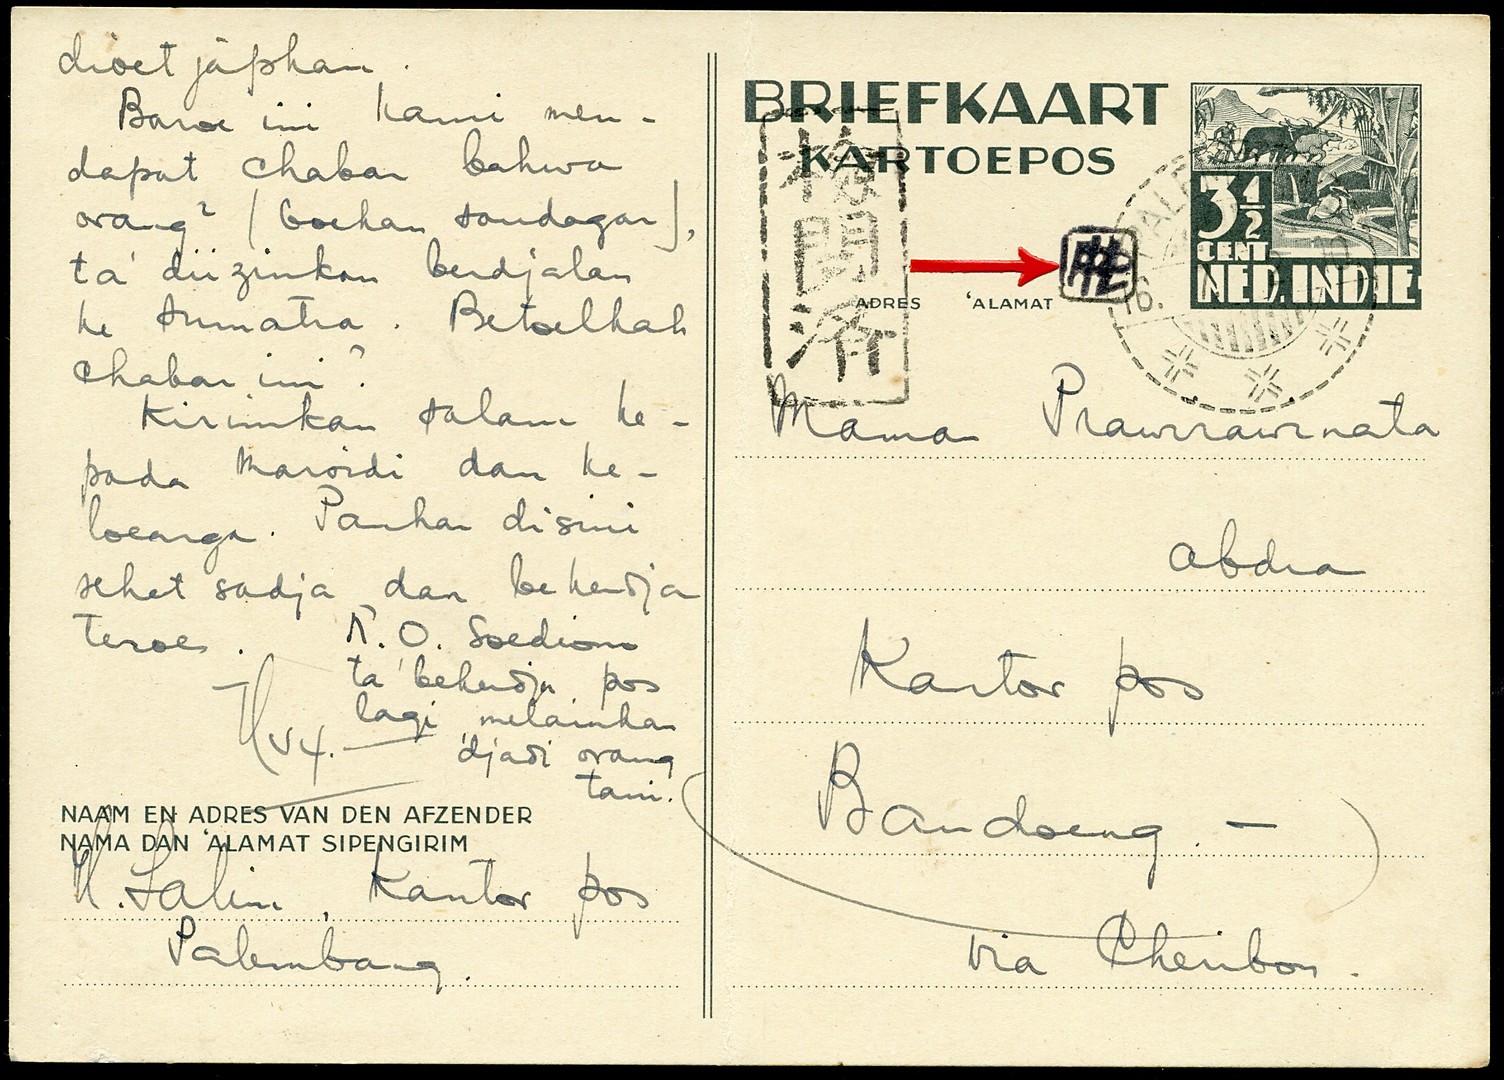 dioetjäphan.
Baroe ini kami men-
dapat chabar bahwa
orang² (boekan saudagar),
ta' diizinkan berdjalan
ke Sumatra. Betoelkah
chabar ini?
Kirimkan salam ke-
pada Maroidi dan ke-
loearga. Pankar disini
sehat sadja dan bekerdja
teroes.
N.O. Soediono
ta' bekerdja pos
lagi, melainkan
djadi orang
tani.
NAAM EN ADRES VAN DEN AFZENDER
NAMA DAN 'ALAMAT SIPENGIRIM
H. Salim, Kantor pos
Palembang.
BRIEFKAART
KARTOEPOS
3½
CENT
NED. INDIE
検閲済
PALE
16.
ADRES 'ALAMAT
Maman Prawirawinata
Abdra
Kantor pos
Bandoeng. -
via Cheribon.